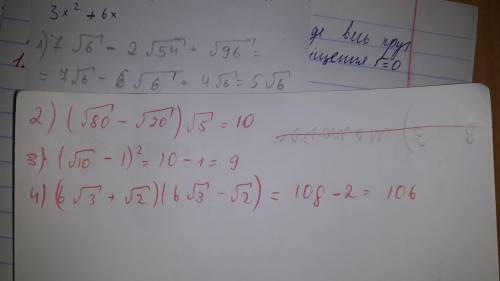 3x² + 6x
1. 1) 7√6 - 2√54 + √96 =
= 7√6 - 6√6 + 4√6 = 5√6
щения r=0
2) (√80 - √20)√5 = 10
3) (√10 - 1)² = 10 - 1 = 9
4) (6√3 + √2)(6√3 - √2) = 108 - 2 = 106